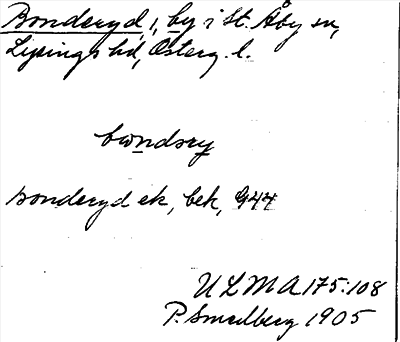 Bonderyd, by i St. Åby sn,
Lysings hd, Österg. l.
bωndsry
Bonderyd ek, bek, G44
ULMA 175:108
P. Smedberg 1905